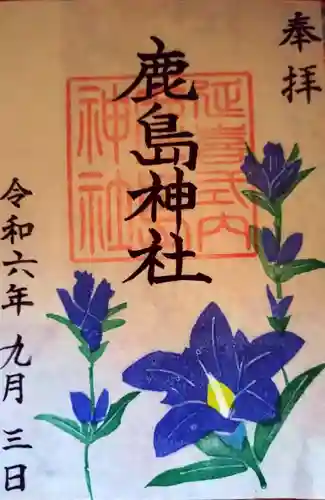 奉拝
鹿島神社
延喜式内
神社
令和六年九月三日